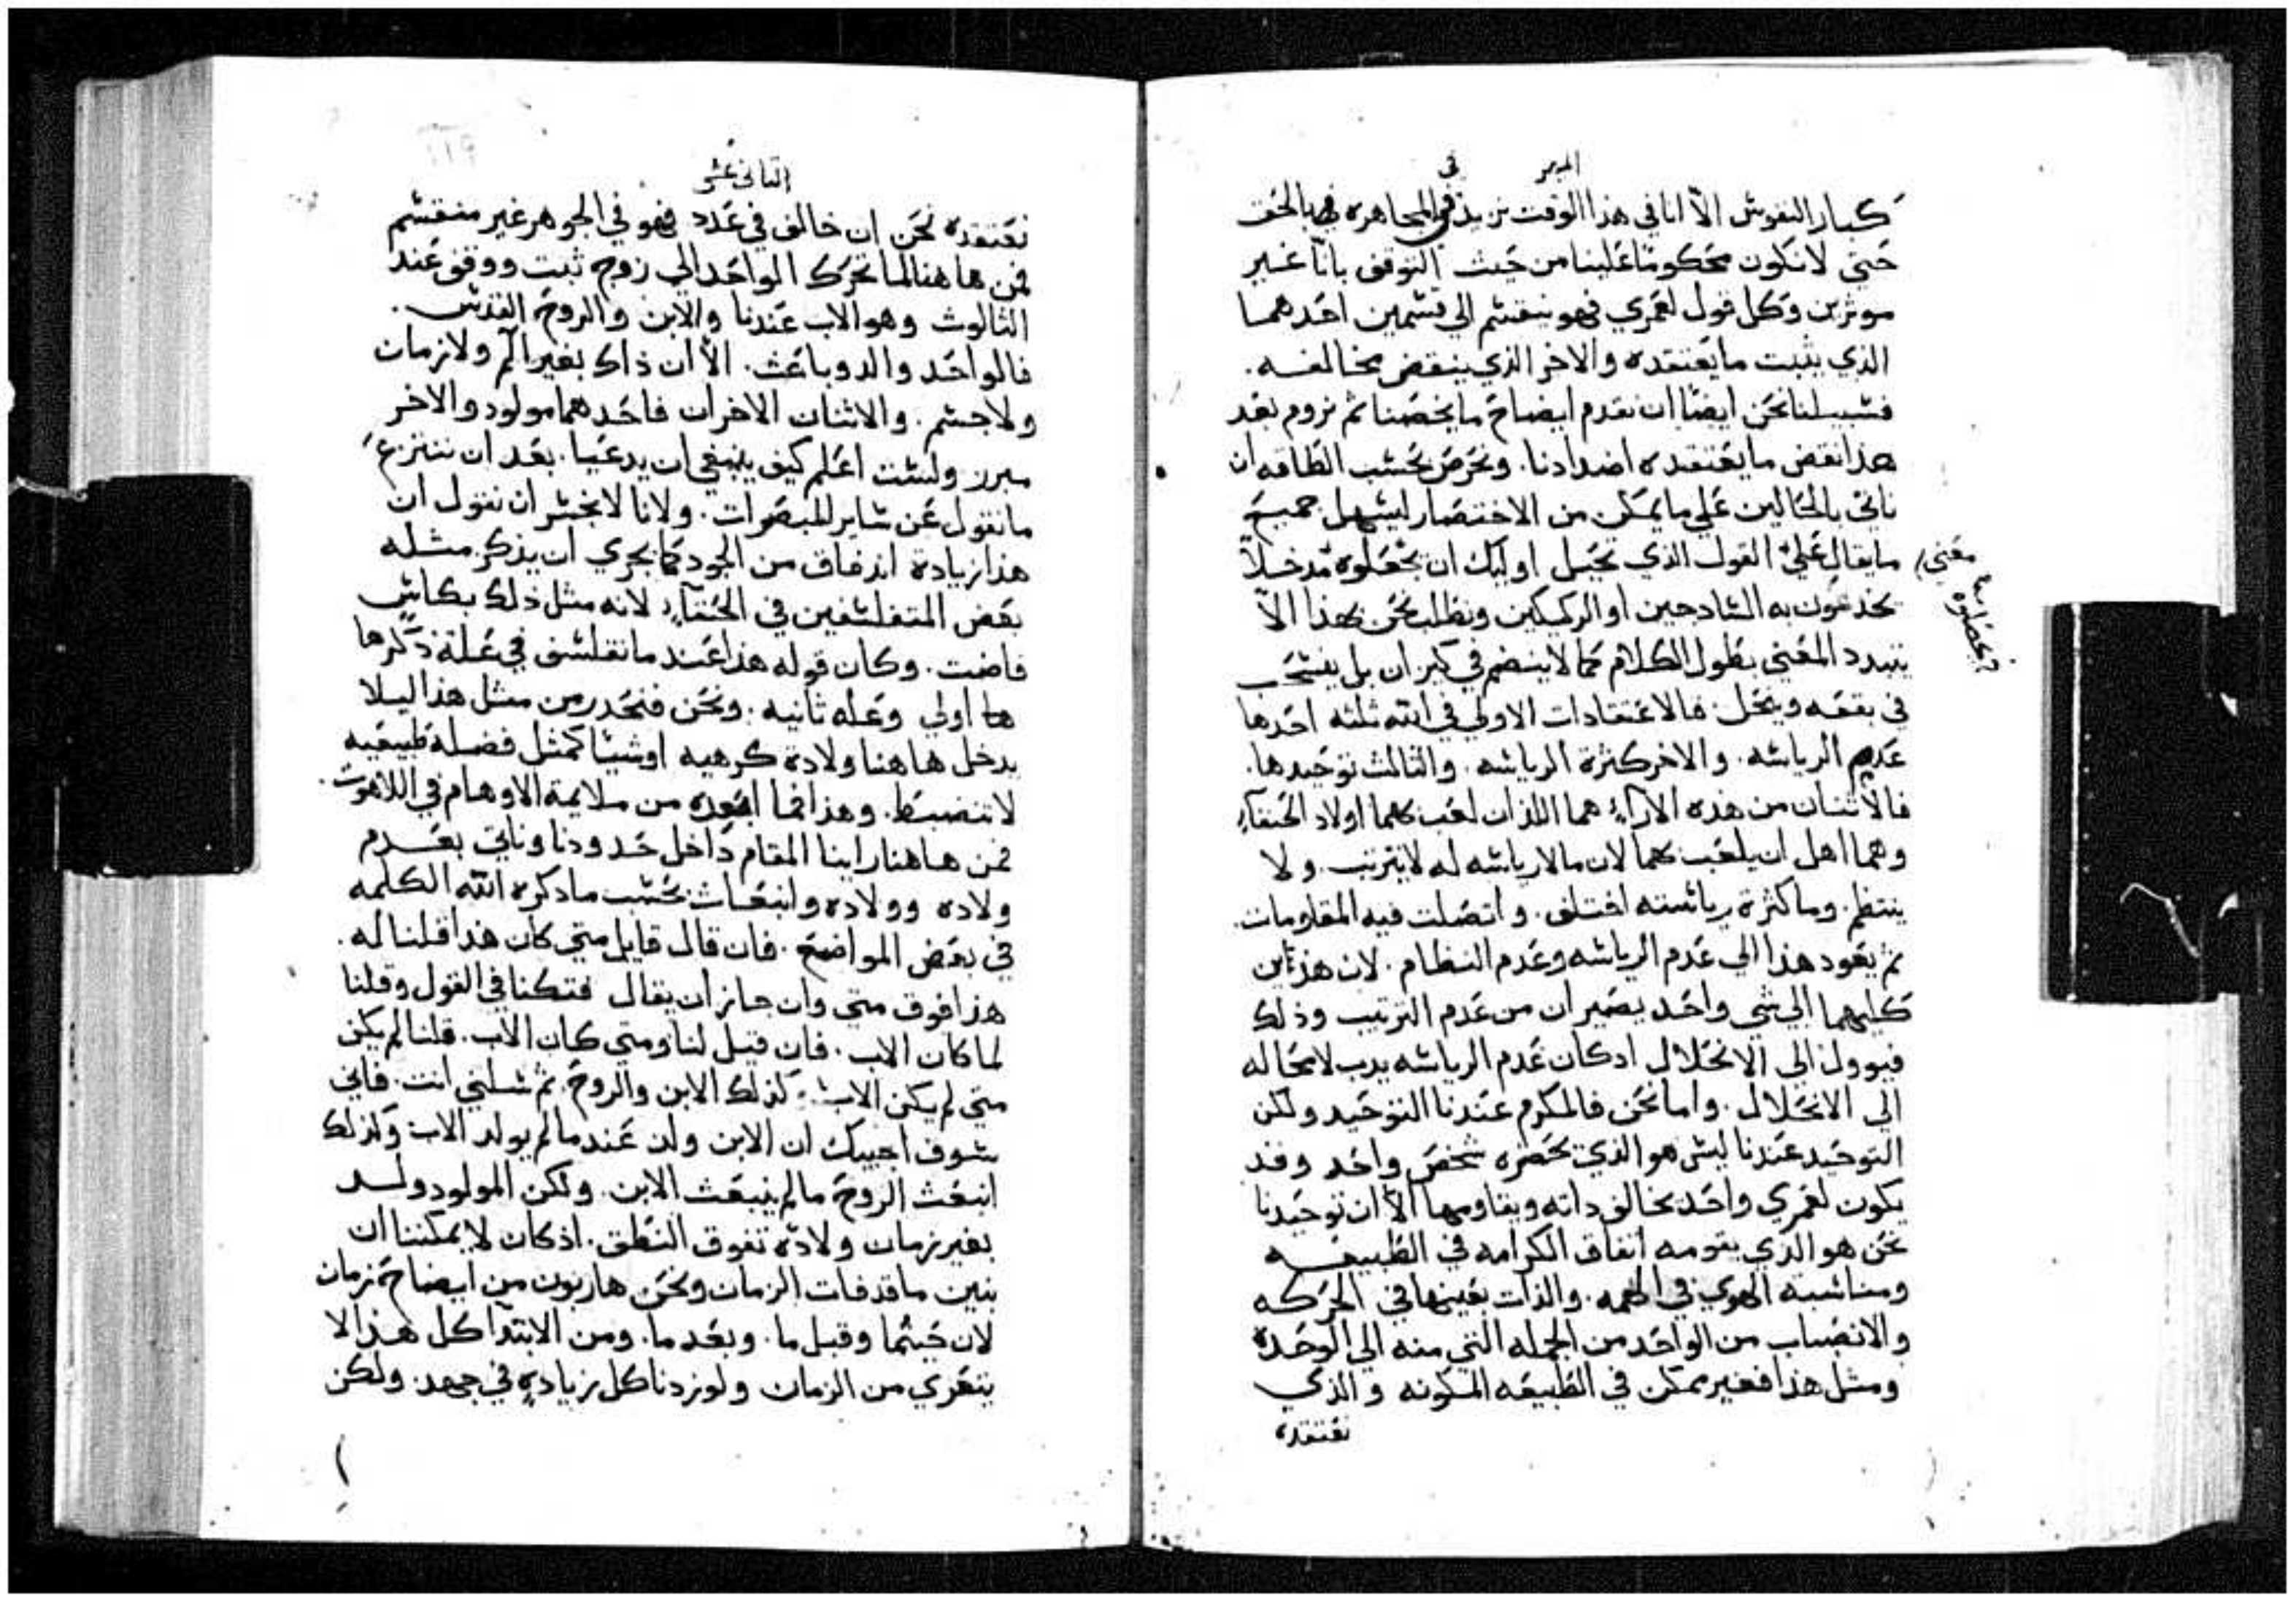 الميمر في
كبار النفوس الاّ انا في هذا الوقت نريد في المجاهره في بالحق
حتي لا نكون محكومًا علينا من حيث التوقف باناّ غير
موثرين وكل قول لعمري فهو ينقسم الي قسمين احدهما
الذي يثبت ما يعتقده والاخر الذي ينقض مخالفه.
فسبيلنا نحن ايضًا ان نقدم ايضاح ما يخصنا ثم نروم بعد
هذا نقض ما يعتقده اضدادنا. ونحرص بحسب الطاقه ان
ناتي بالحالين علي ما يمكن من الاختصار ليسهل جميع
ما يقال علي القول الذي تحيل اوليك ان يجعلوه مدخلاً
معني
يخدعون به السادجين او الركيكين ونطلب نحن بهذا الاّ
يتبدد المعني بطول الكلام كما لا ينضم في كيران بل ينسحب
في بقعه ويحل. فالاعتقادات الاولي في الله ثلثه احدها
عديم الرياسه. والاخر كثرة الرياسه. والثالث توحيدها.
فالاثنان من هذه الارآء هما اللذان لعب بهما اولاد الحنفآء
وهما اهل ان يلعب بهما لان ما لا رياسه له لا يترتب. ولا
ينتظم. وما كثرة رياسته اختلف. واتصلت فيه المقاومات.
ثم يعود هذا الي عدم الرياسه وعدم النظام. لان هذين
كليهما الي شي واحد يصيران من عدم الترتيب وذلك
فيوول الي الانحلال ادكان عدم الرياسه يدب لا محاله
الي الانحلال. واما نحن فالمكرم عندنا التوحيد ولكن
التوحيد عندنا ليس هو الذي يحصره شخص واحد وقد
يكون لعمري واحد يخالف داته ويقاومها الاّ ان توحيدنا
نحن هو الذي يقومه اتفاق الكرامه في الطبيعه
ومناسبة الهوي في الهمه. والذات بعينها في الحركه
والانصباب من الواحد من الجمله التي منه الي الوحدة
ومثل هذا فغير ممكن في الطبيعه المكونه والذي
نعتقده
الثاني عشر
نعتقده نحن ان خالف في عدد فهو في الجوهر غير منقسم
فمن هاهنا لما تحرك الواحد الي زوج ثبت ووقف عند
الثالوث وهو الاب عندنا والابن والروح القدس.
فالواحد والد وباعث. الاّ ان ذاك بغير الم ولا زمان
ولا جسم. والاثنان الاخران فاحدهما مولود والاخر
مبرز ولست اعلم كيف ينبغي ان يدعيا. بعد ان ننتزع
ما نقول عن ساير المبصرات. ولانا لا نجسر ان نقول ان
هذا زيادة اندفاق من الجود كما يجري ان يذكر مثله
بعض المتفلسفين في الحنفآء لانه مثل ذلك بكاسٍ
فاضت. وكان قوله هذا عند ما تفلسف في علة ذكرها
ها اولي وعله ثانيه. ونحن فنحذر من مثل هذا ليلا
يدخل هاهنا ولادة كرهيه او شيئا كمثل فضلة طبيعيه
لا تنضبط. وهذا فما ابعده من ملايمة الاوهام في اللاهوت.
فمن هاهنا راينا المقام داخل حدودنا وناتي بعدم
ولاده وولاده وانبعاث بحسب ما دكره الله الكلمه
في بعض المواضع. فان قال قايل متي كان هذا قلنا له.
هذا فوق متي وان جاز ان يقال فتكنا في القول وقلنا
لما كان الاب. فان قيل لنا ومتي كان الاب. قلنا لم يكن
متي لم يكن الاب. كذلك الابن والروح. ثم سلني انت. فاني
سوف اجيبك ان الابن ولد عند ما لم يولد الاب وكذلك
انبعث الروح ما لم ينبعث الابن. ولكن المولود ولد
بغير زمان ولادة تفوق النطق. اذ كان لا يمكننا ان
نبين ما قد فات الزمان ونحن هاربون من ايضاح زمان
لان حيثما وقبل ما. وبعد ما. ومن الابتدآ كل هذا لا
يتعري من الزمان ولو زدنا كل زيادة في جهد. ولكن